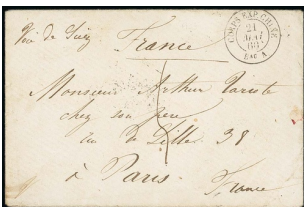 Voie de Suez
France
CORPS EXP. CHINE
21
AOUT
63
BAU A
Monsieur Arthur
chez son père
rue de Lille 38
à Paris.
France